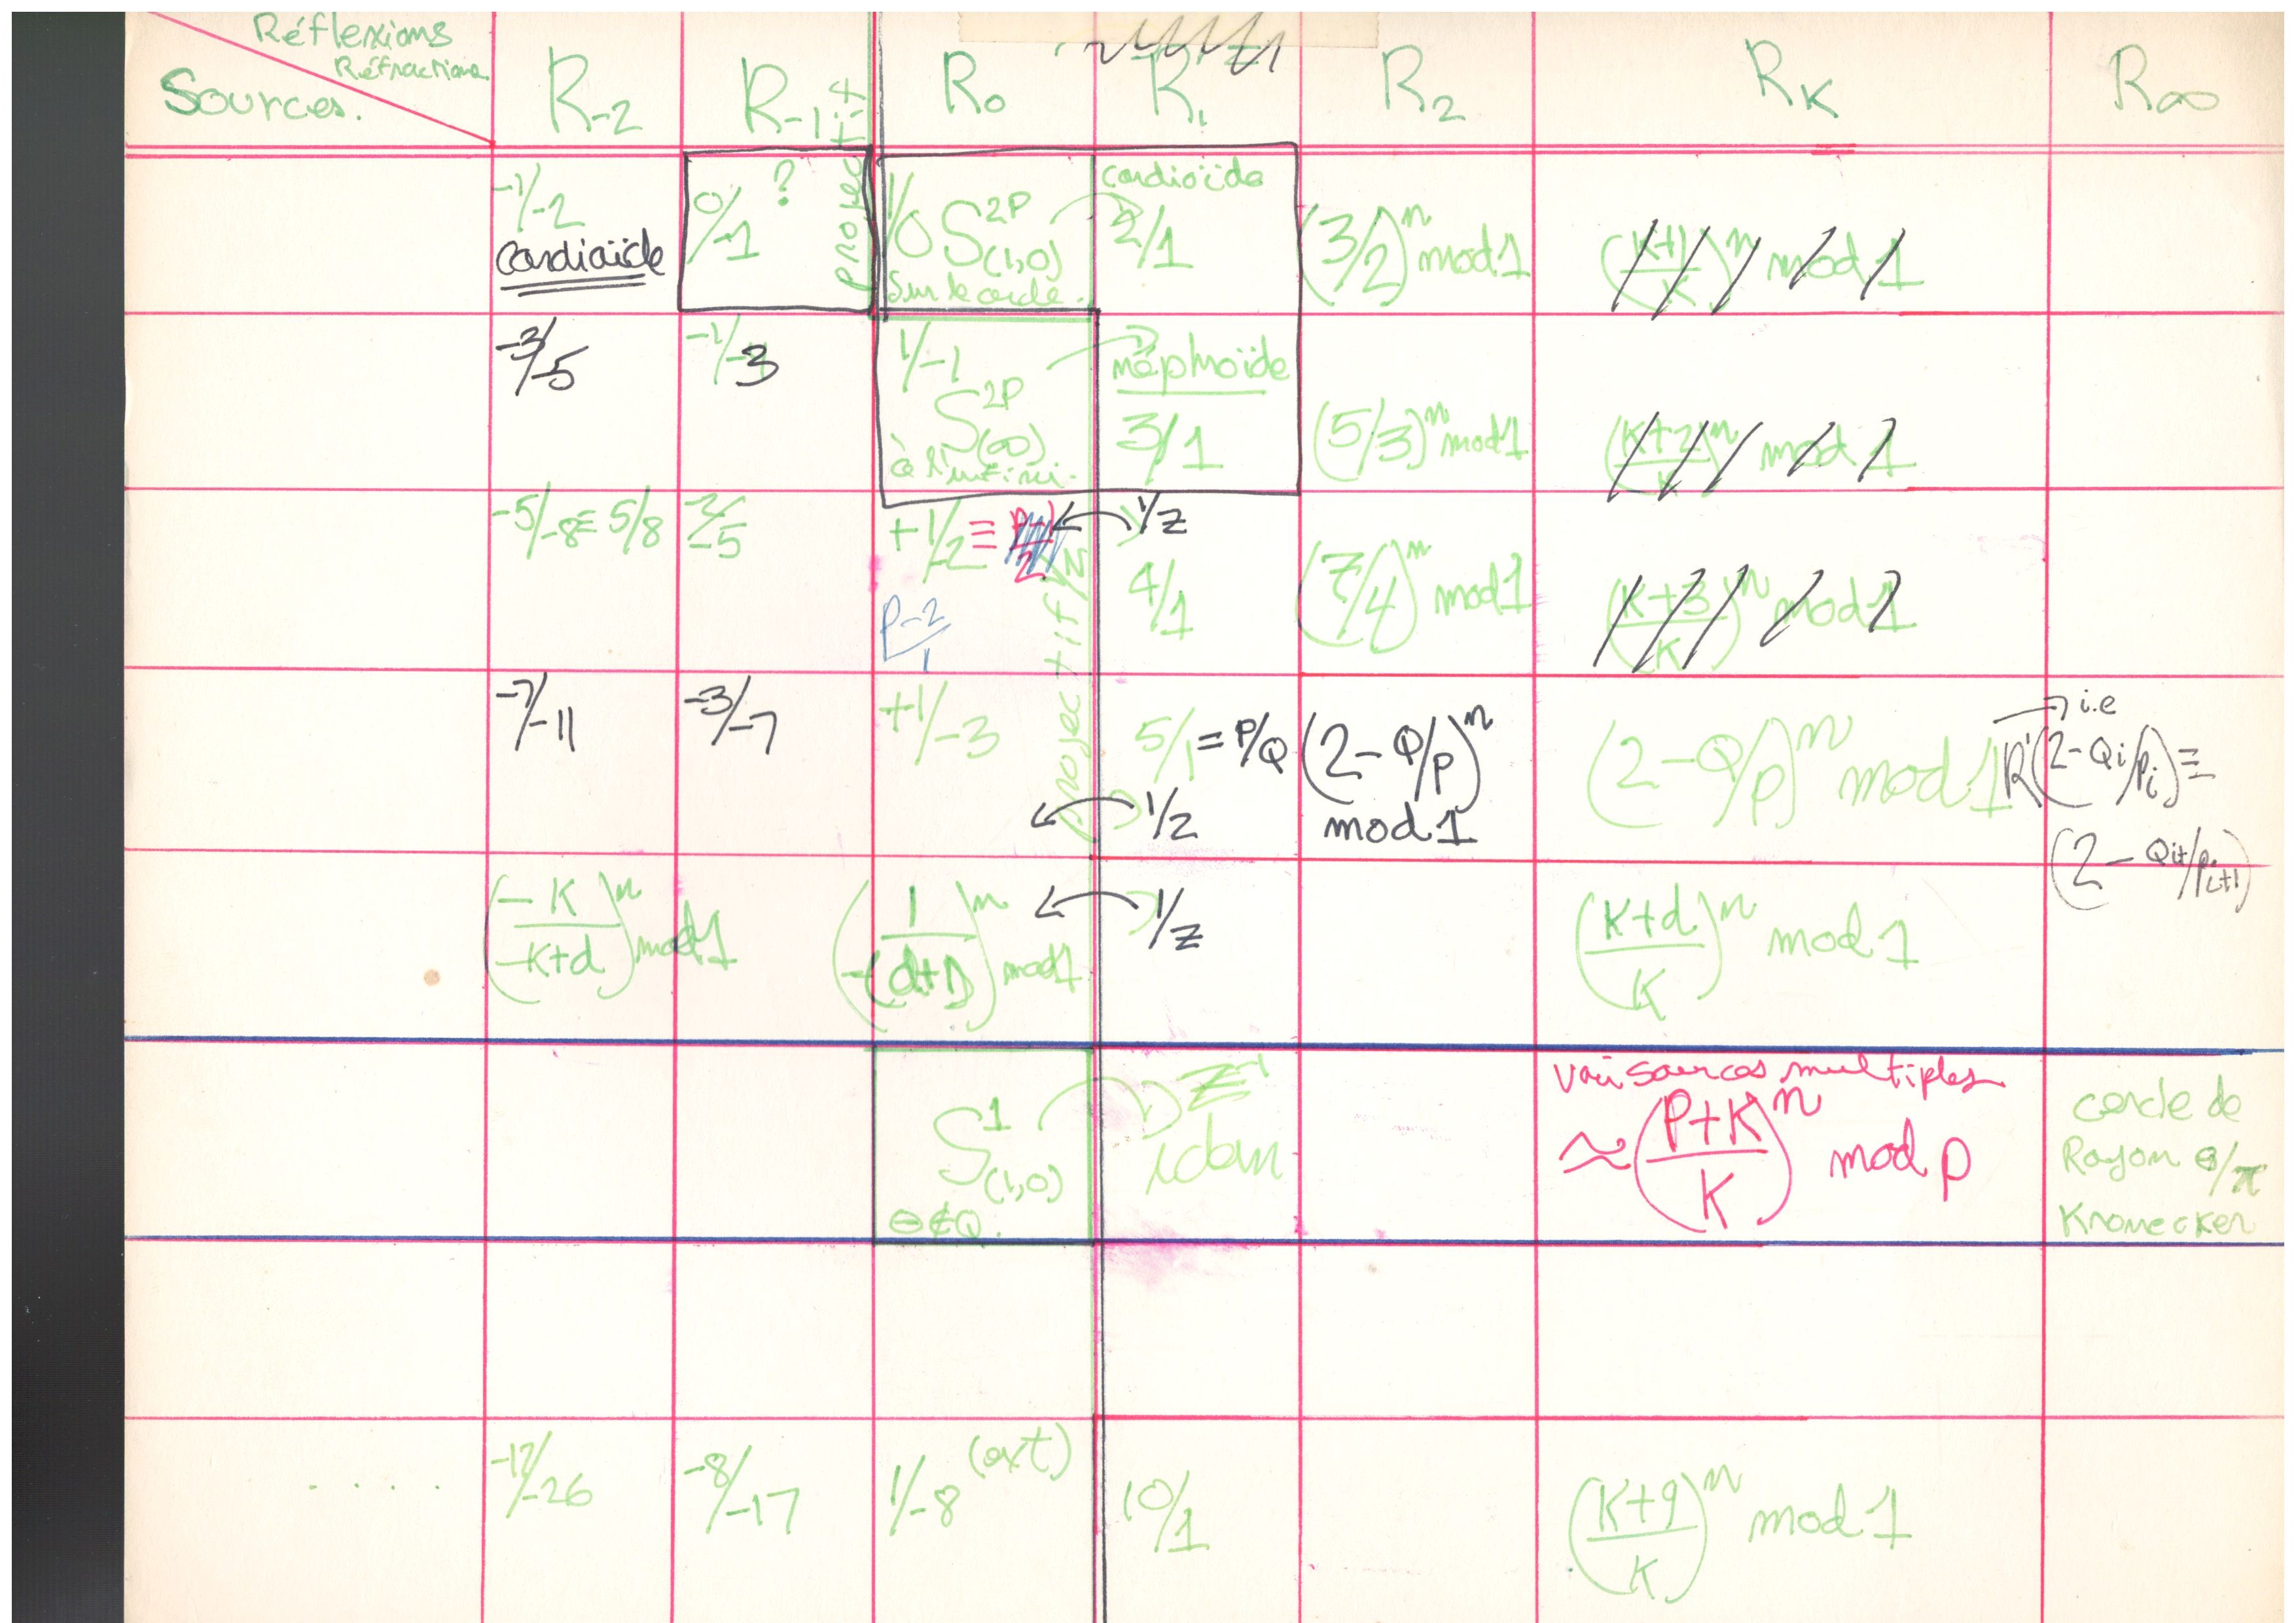 Réflexions
Réfractions
Sources.
R-2
R-1
R0
R1
R2
RK
R∞
projectif
-1/-2
cardioïde
0/-1 ?
1/0 S^2P (1,0)
Sur le cercle.
cardioïde
2/1
(3/2)^n mod 1
((K+1)/K)^n mod 1
-3/-5
-1/-3
1/-1
S^2P (∞)
à l'infini.
néphroïde
3/1
(5/3)^n mod 1
((K+2)/K)^n mod 1
-5/-8 ≡ 5/8
-2/-5
+1/-2 ≡
P-2/1
1/Z
4/1
(7/4)^n mod 1
((K+3)/K)^n mod 1
projectif
-7/-11
-3/-7
+1/-3
5/1 = P/Q
1/Z
(2-Q/p)^n
mod 1
(2-Q/p)^n mod 1
i.e
R'(2-Qi/pi) =
(2-Qi+1/pi+1)
(-K/-K+d)^n mod 1
(1/-(d+1))^n mod 1
1/Z
((K+d)/K)^n mod 1
S^1 (1,0)
θ∉Q.
Z^-1
idem
Voir sources multiples
≈((P+K)/K)^n mod p
cercle de
Rayon θ/π
Kronecker
. . . .
-17/-26
-8/-17
1/-8 (ext)
10/1
((K+9)/K)^n mod 1